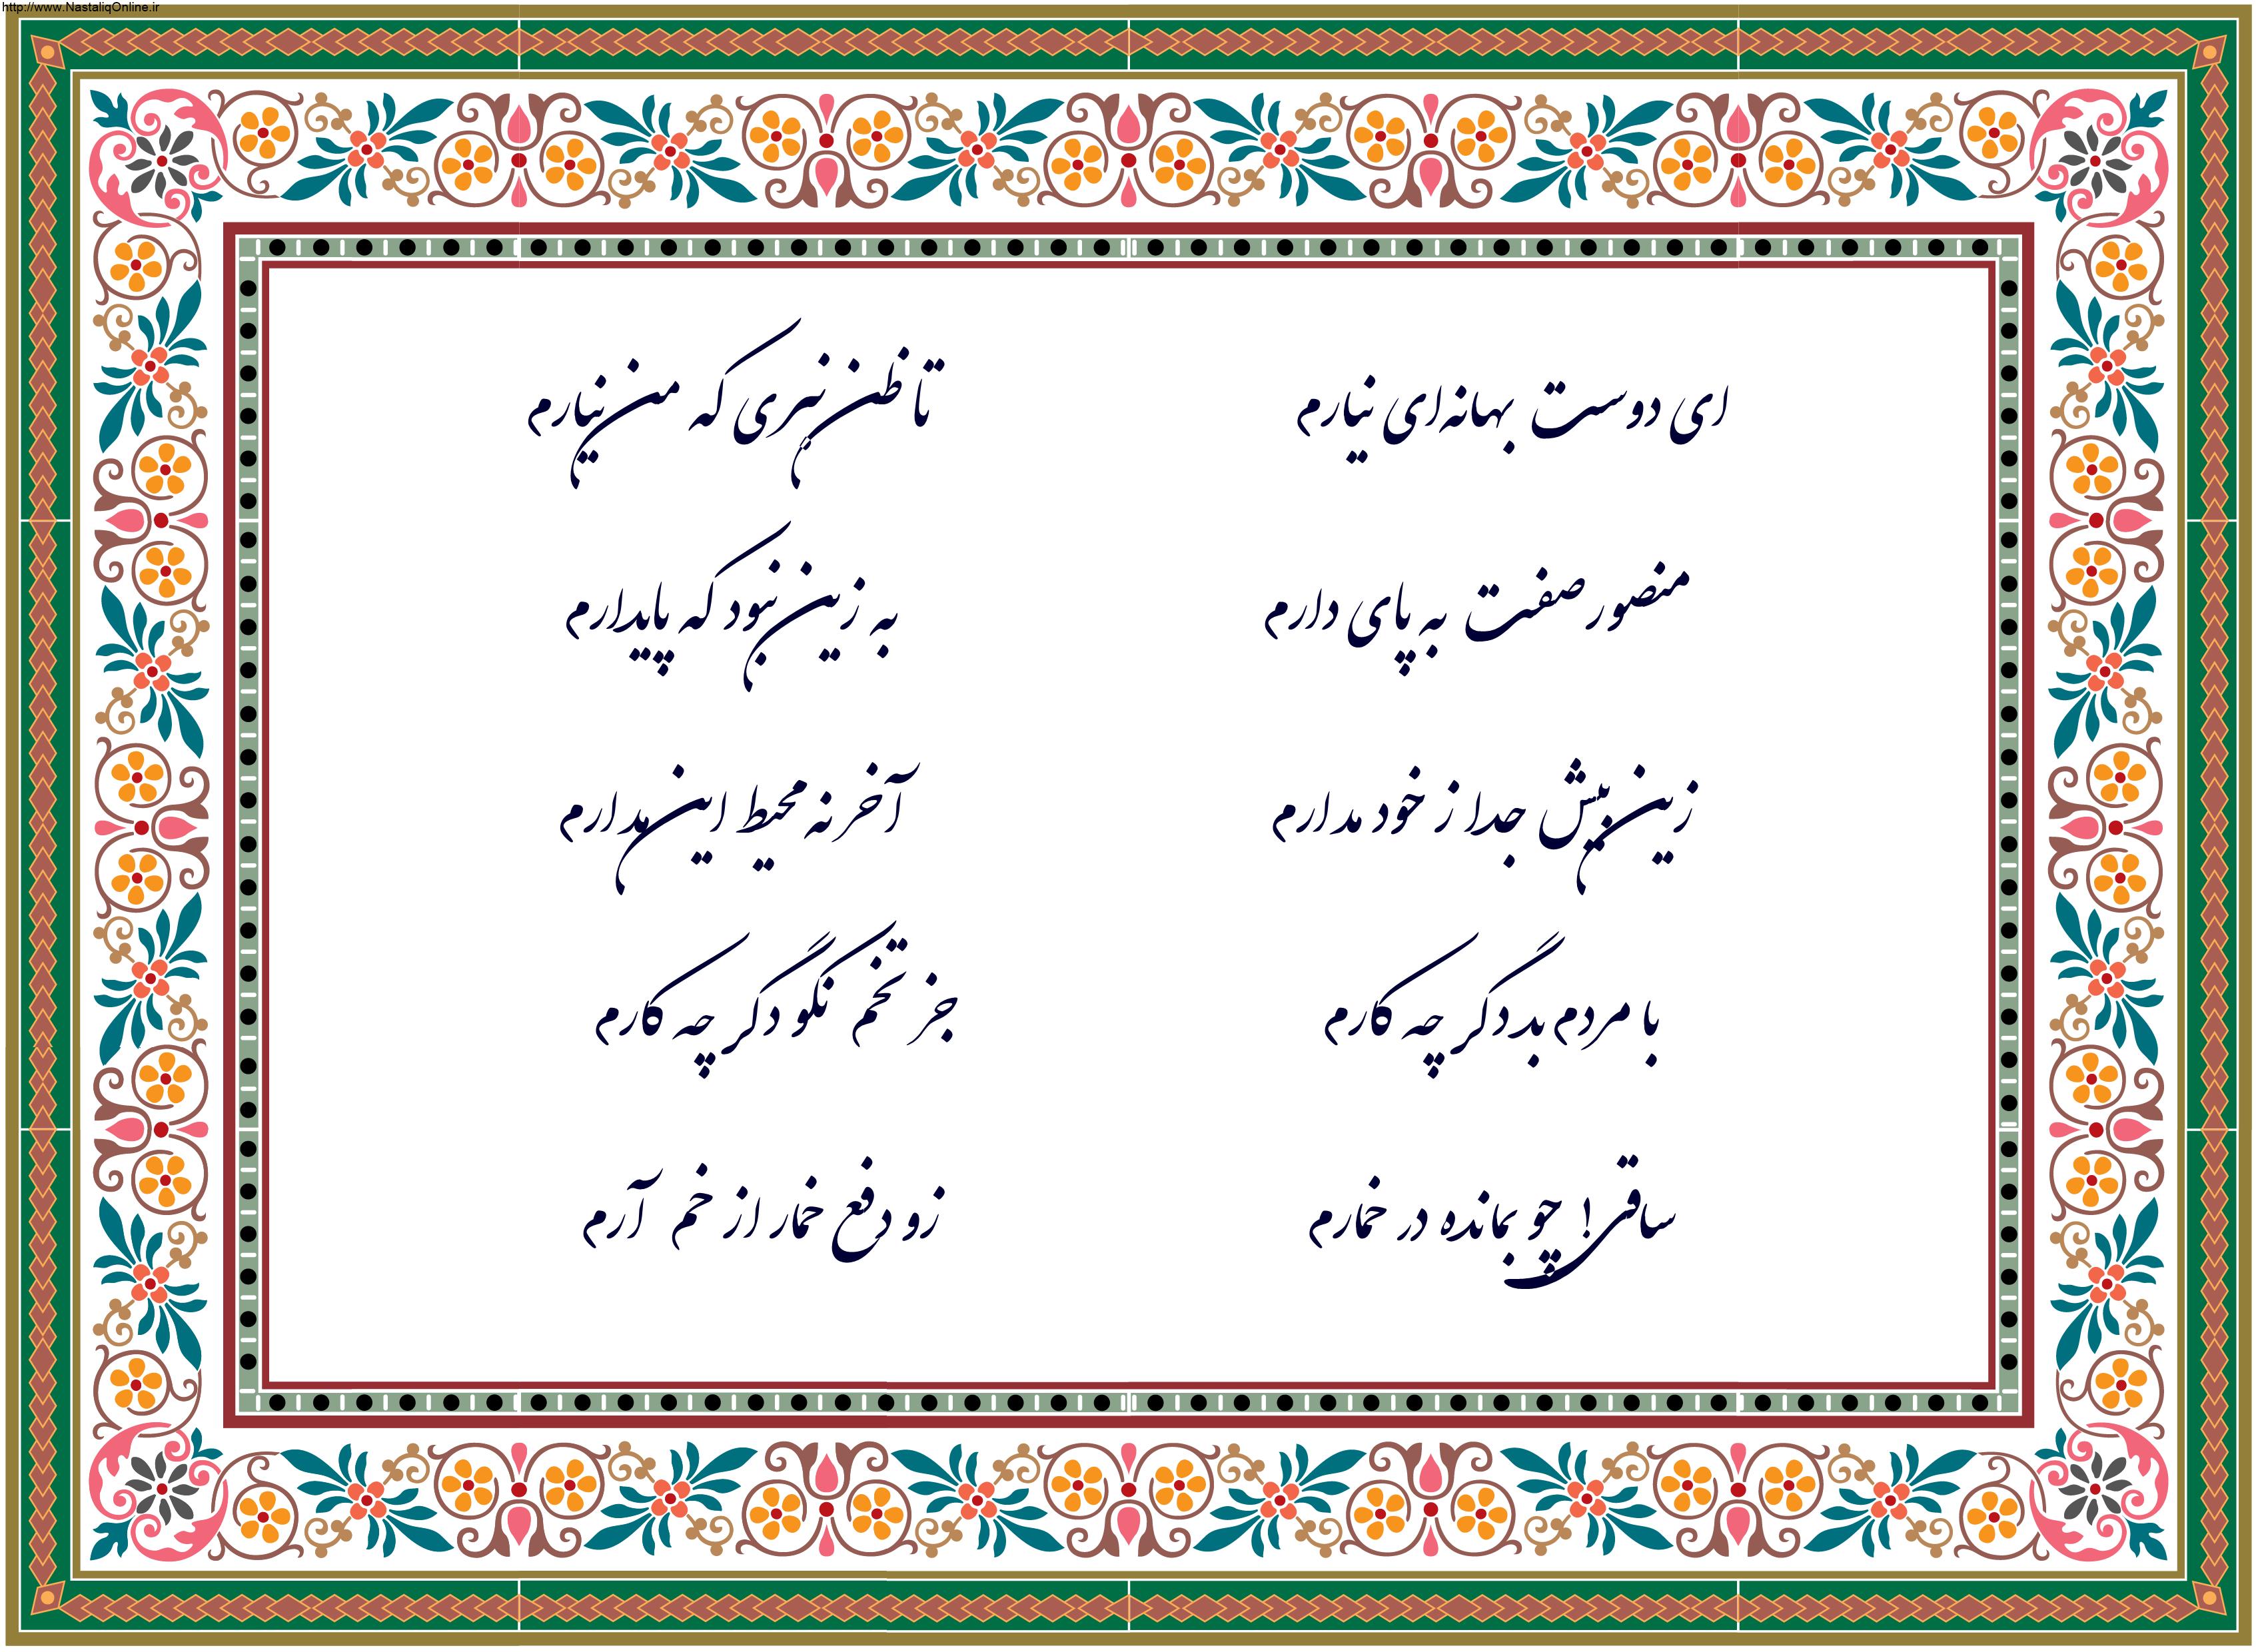 http://www.NastaliqOnline.ir
ای دوست بهانه‌ای نیارم تا ظن نبری که من نیارم
منصور صفت به پای دارم به زین نبود که پایدارم
زین بیش جدا ز خود مدارم آخر نه محیط این مدارم
با مردم بد دگر چه کارم جز تخم نکو دگر چه کارم
ساقی! چو بمانده در خمارم زو دفع خمار از خم آرم